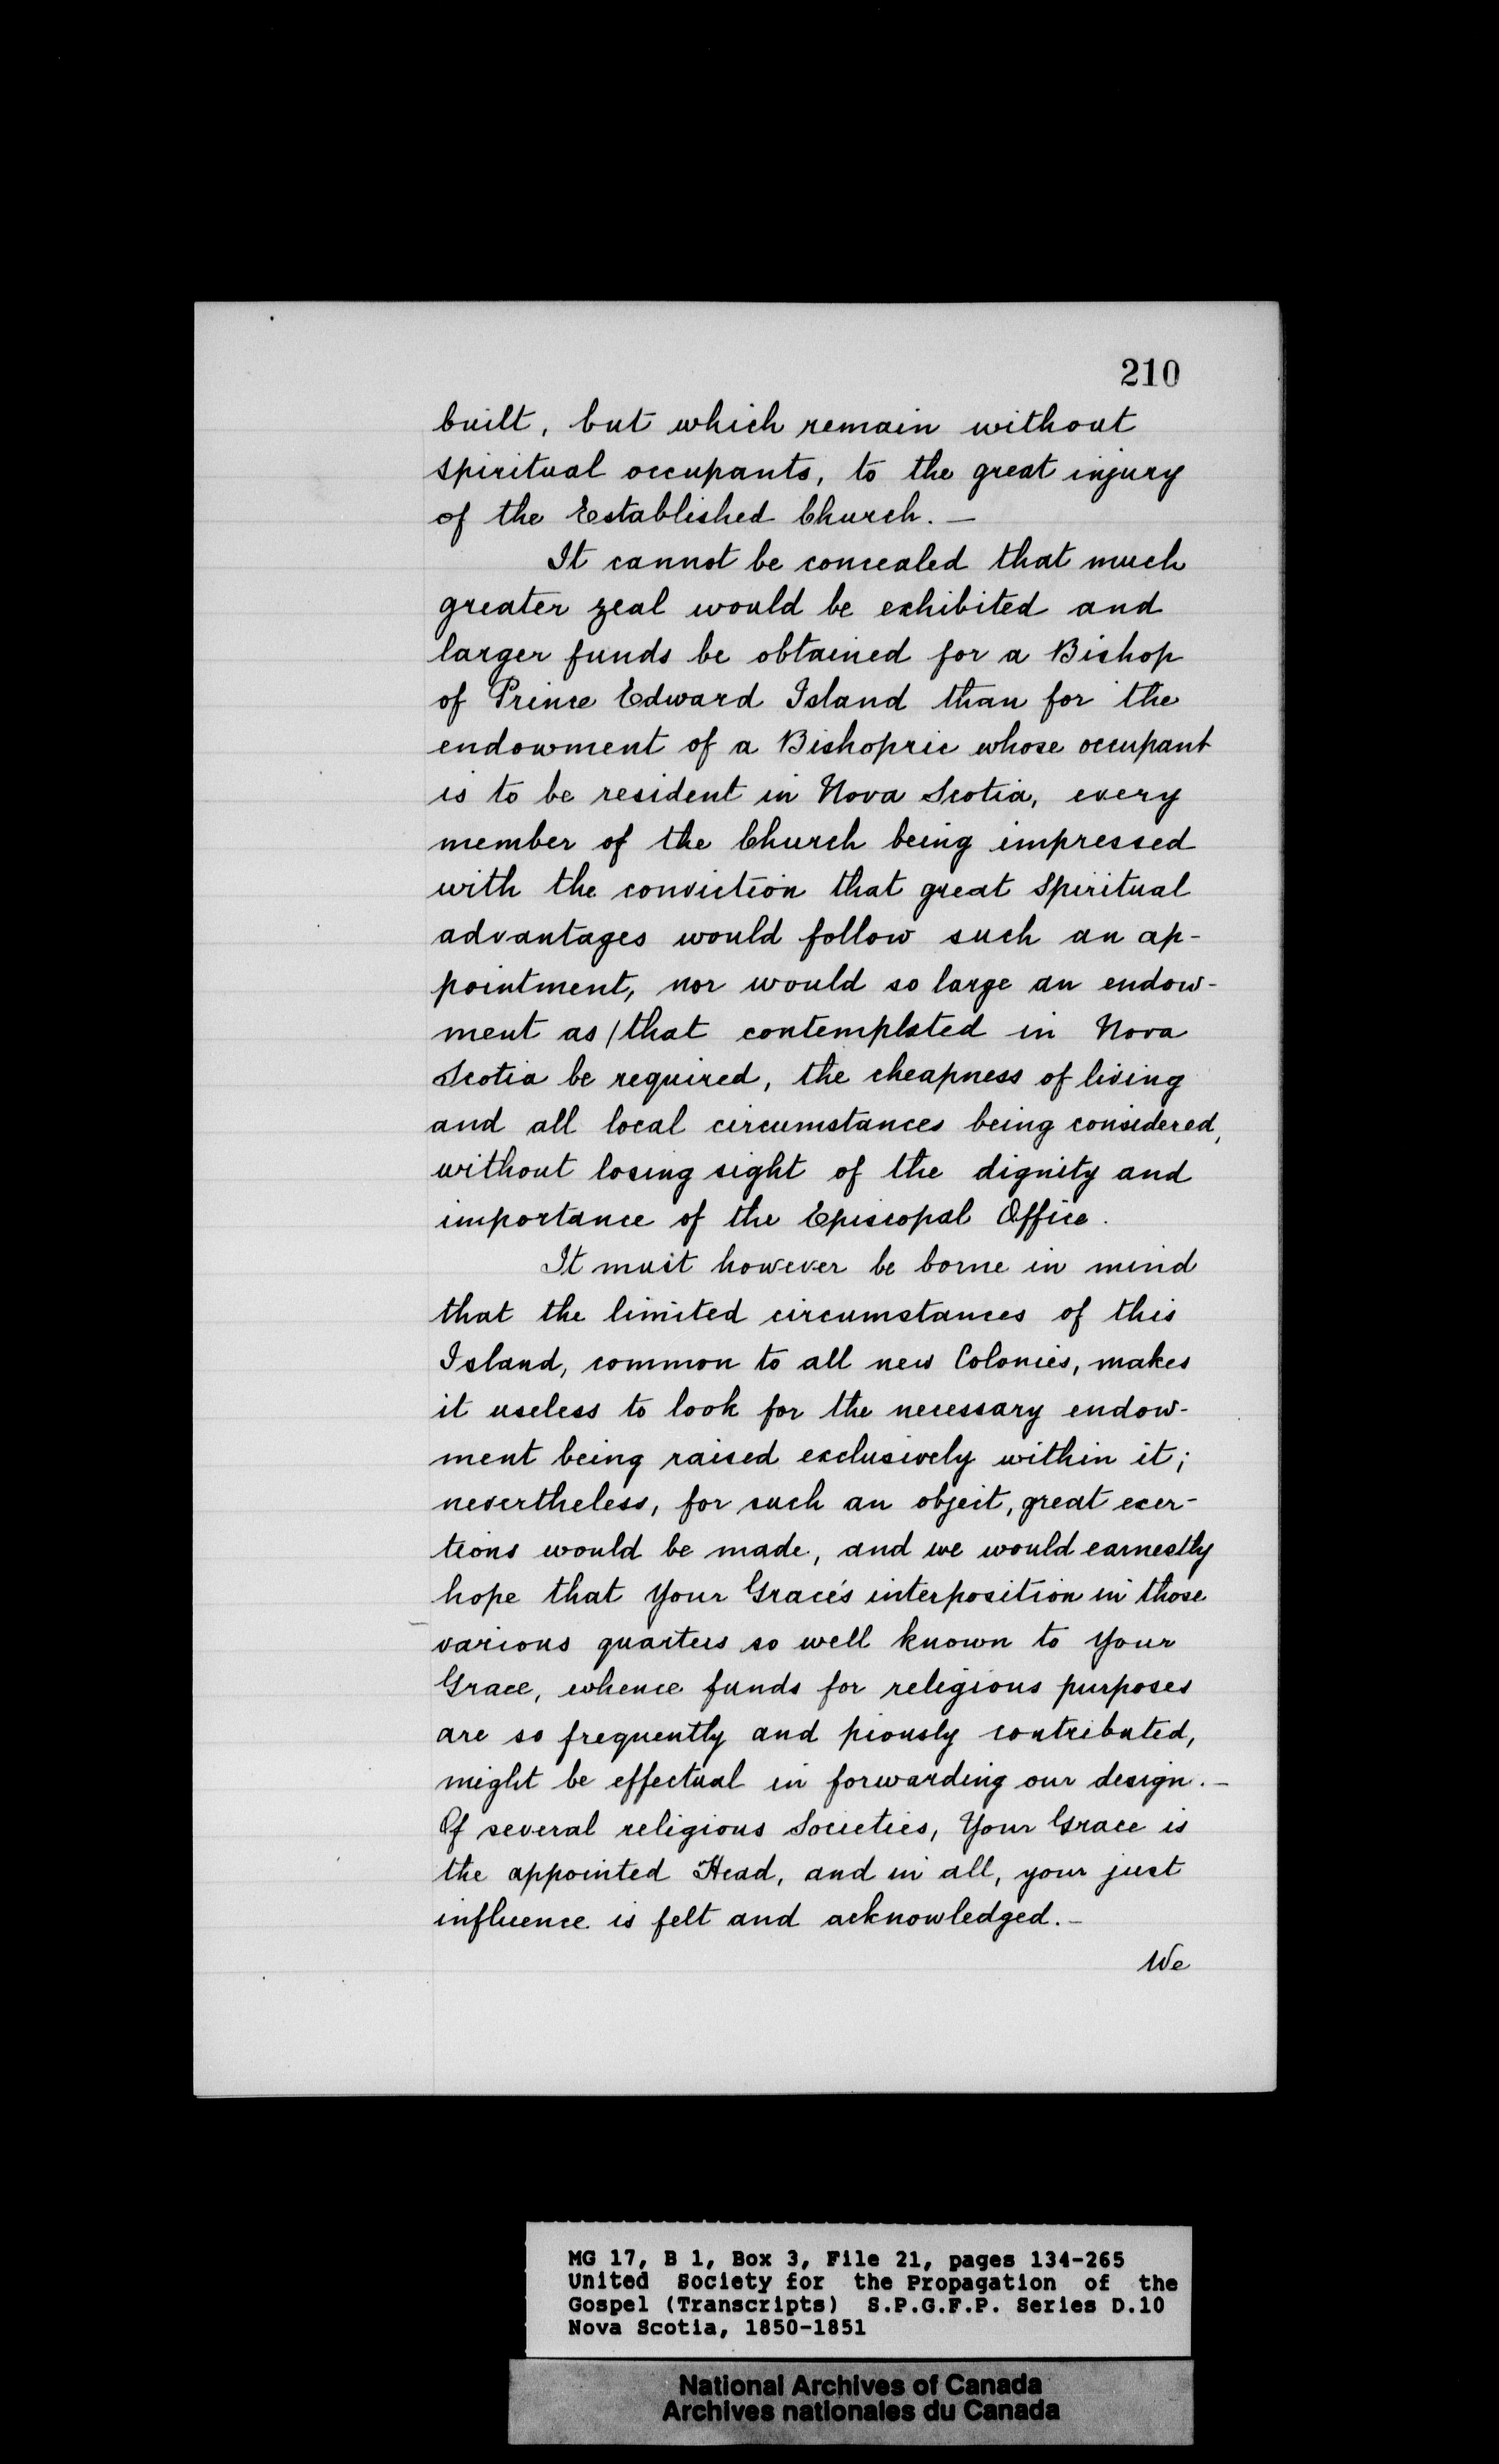 210
built, but which remain without
spiritual occupants, to the great injury
of the Established Church. —
It cannot be concealed that much
greater zeal would be exhibited and
larger funds be obtained for a Bishop
of Prince Edward Island than for the
endowment of a Bishopric whose occupant
is to be resident in Nova Scotia, every
member of the Church being impressed
with the conviction that great spiritual
advantages would follow such an ap-
pointment, nor would so large an endow-
ment as / that contemplated in Nova
Scotia be required, the cheapness of living
and all local circumstances being considered,
without losing sight of the dignity and
importance of the Episcopal Office.
It must however be borne in mind
that the limited circumstances of this
Island, common to all new Colonies, makes
it useless to look for the necessary endow-
ment being raised exclusively within it;
nevertheless, for such an object, great exer-
tions would be made, and we would earnestly
hope that Your Grace's interposition in those
various quarters so well known to Your
Grace, whence funds for religious purposes
are so frequently and piously contributed,
might be effectual in forwarding our design. —
Of several religious Societies, Your Grace is
the appointed Head, and in all, your just
influence is felt and acknowledged. —
We
MG 17, B 1, Box 3, File 21, pages 134-265
United Society for the Propagation of the
Gospel (Transcripts) S.P.G.F.P. Series D.10
Nova Scotia, 1850-1851
National Archives of Canada
Archives nationales du Canada